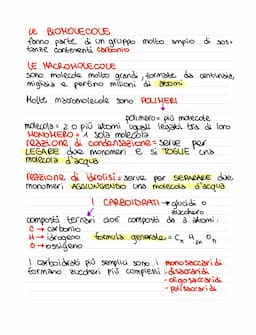 LE BIOMOLECOLE
fanno parte di un gruppo molto ampio di sos-
tanze contenenti carbonio
LE MACROMOLECOLE
sono molecole molto grandi, formate da centinaia,
migliaia e perfino milioni di atomi
Molte macromolecole sono POLIMERI
polimero = più molecole
molecola = 2 o più atomi uguali legati tra di loro
MONOMERO = 1 sola molecola
reazione di condensazione = serve per
LEGARE due monomeri e si TOGLIE una
molecola d'acqua
reazione di idrolisi = serve per SEPARARE due
monomeri AGGIUNGENDO una molecola d'acqua
I CARBOIDRATI → glucidi o
zuccheri
composti ternari cioè composti da 3 atomi:
C → carbonio
H → idrogeno formula generale = Cn H2n On
O → ossigeno
I carboidrati più semplici sono i monosaccaridi
formano zuccheri più complessi: - disaccaridi
- oligosaccaridi
- polisaccaridi